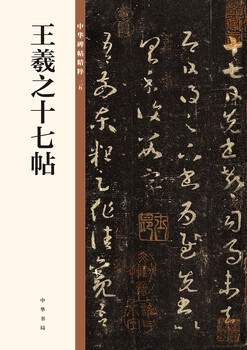 王羲之十七帖
中华碑帖精粹
中华书局
十七日先書郗司馬未去
即日得足下書為慰先書以
具示復數字
吾前東粗足作佳觀